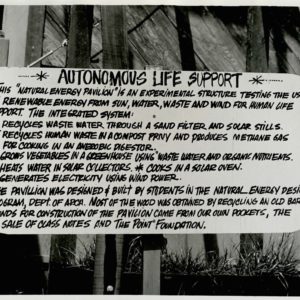 * AUTONOMOUS LIFE SUPPORT *
THIS "NATURAL ENERGY PAVILION" IS AN EXPERIMENTAL STRUCTURE TESTING THE USE
RENEWABLE ENERGY FROM SUN, WATER, WASTE AND WIND FOR HUMAN LIFE
PPORT. THE INTEGRATED SYSTEM:
RECYCLES WASTE WATER THROUGH A SAND FILTER AND SOLAR STILLS.
RECYCLES HUMAN WASTE IN A COMPOST PRIVY AND PRODUCES METHANE GAS
FOR COOKING IN AN ANEROBIC DIGESTOR.
GROWS VEGETABLES IN A GREENHOUSE USING WASTE WATER AND ORGANIC NUTRIENTS.
HEATS WATER IN SOLAR COLLECTORS. * COOKS IN A SOLAR OVEN.
GENERATES ELECTRICITY USING WIND POWER.
HE PAVILION WAS DESIGNED & BUILT BY STUDENTS IN THE NATURAL ENERGY DESIG
OGRAM, DEPT. OF ARCH. MOST OF THE WOOD WAS OBTAINED BY RECYCLING AN OLD BAR
NDS FOR CONSTRUCTION OF THE PAVILION CAME FROM OUR OWN POCKETS, THE
SALE OF CLASS NOTES AND THE POINT FOUNDATION.